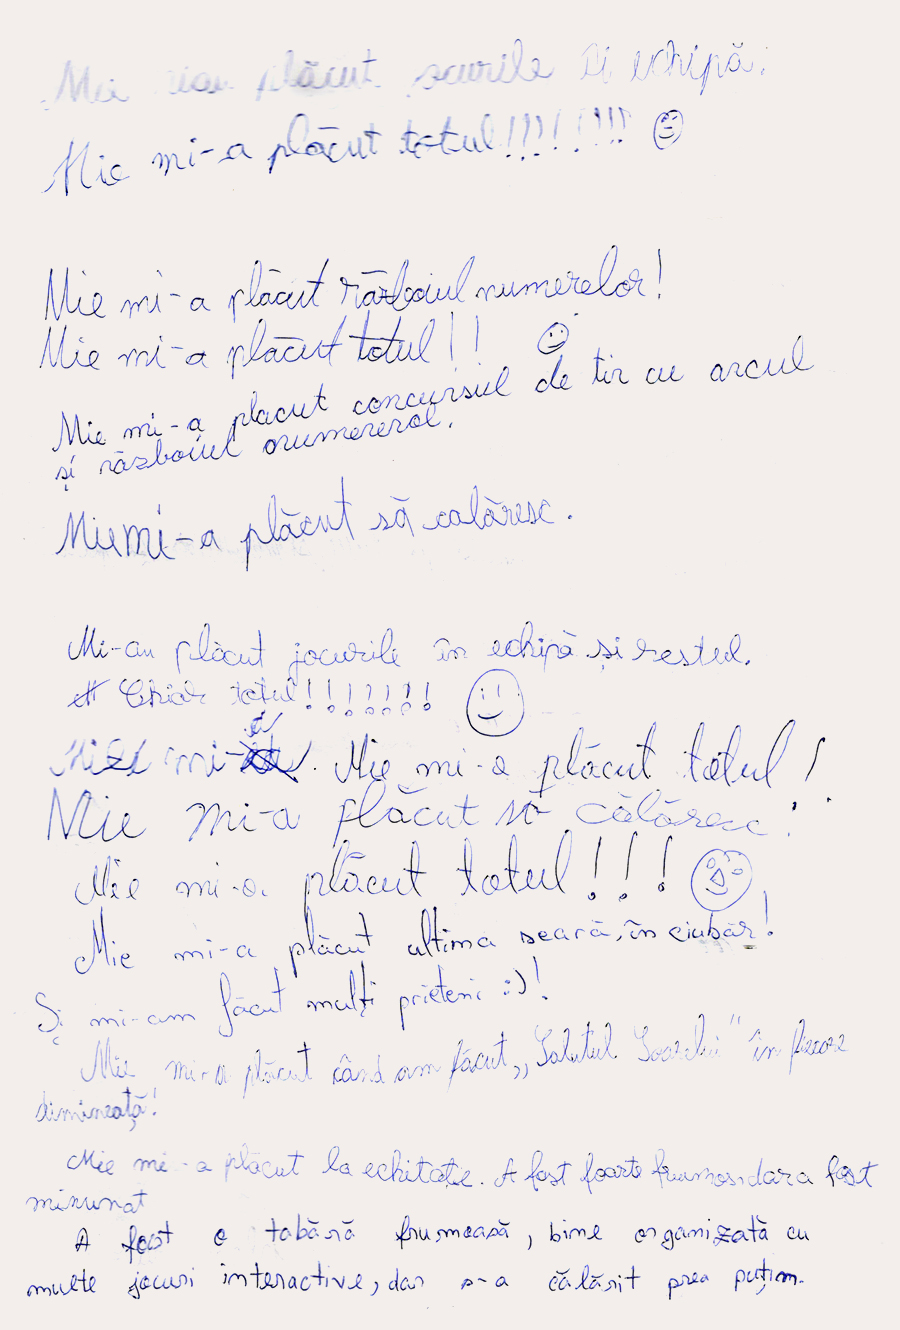 Mie plăcut echipă.
Mie mi-a plăcut totul!!!!!!!!
Mie mi-a plăcut războiul numerelor!
Mie mi-a plăcut totul!!
Mie mi-a placut concursul de tir cu arcul
și războiul numererol.
Mie mi-a plăcut să călăresc.
Mi-au plăcut jocurile în echipă și restul.
Chiar totul!!!!!!!
mi- Mie mi-a plăcut totul!
Mie mi-a plăcut să călăresc!
Mie mi-a plăcut totul!!!
Mie mi-a plăcut ultima seară, în ciubăr!
Și mi-am făcut mulți prieteni :)!
Mie mi-a plăcut când am făcut „Salutul Soarelui" în fiecare
dimineață!
Mie mi-a plăcut la echitație. A fost foarte frumos, dar a fost
minunat
A fost o tabără frumoasă, bine organizată cu
multe jocuri interactive, dar s-a călărit prea puțin.